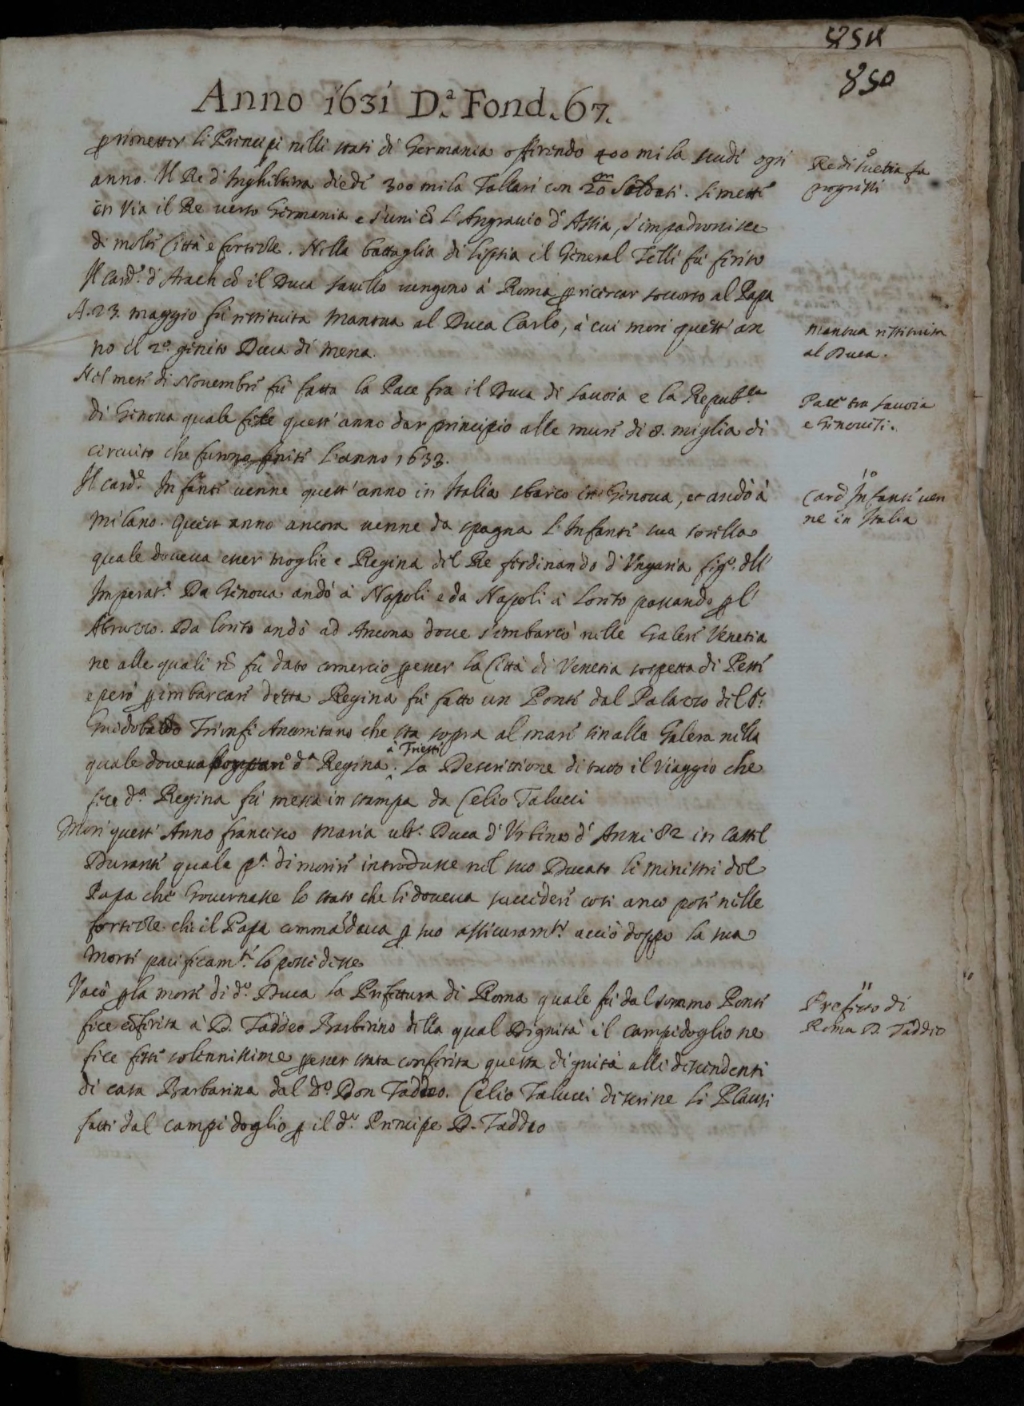 850
Anno 1631 D.ª Fond. 67.
p rimetter li Principi nelli stati di Germania offerendo 400 mila scudi ogni
anno. Il Re d'Inghilterra diede 300 mila Tallari con 20 Soldati. Si mette
in via il Re verso Germania e s'unì cō L'Angravio d'Assia, s'impadronisce
di molte Città e fortezze. Nella battaglia di Lipsia il General Tilli fù ferito
Il Card.ˡ d'Arach cō il Duca Savello vengono à Roma p ricercar soccorso al Papa
A. 23 maggio fù restituita Mantova al Duca Carlo, à cui morì quest' an
no il 2.º genito Duca di Mena.
Nel mese di Novembre fù fatta la Pace fra il Duca di Savoia e la Repub.ca
di Genova quale fece quest' anno dar principio alle mura di 8. miglia di
circuito che furno finite l'anno 1633.
Il Card.ˡ Infante venne quest' anno in Italia sbarcò in Genova, et andò à
Milano. Quest anno ancora venne da spagna L'Infante sua sorella
quale doveva esser moglie e Regina del Re ferdinando d'Ungaria fig.º dell'
Imperat.e Da Genova andò à Napoli e da Napoli à Loreto passando p l'
Abruzzo. Da loreto andò ad Ancona dove s'imbarcò nelle Galere Venetia
ne alle quali nō fù dato comercio p esser la Città di Venetia sospetta di Peste
e però p imbarcare detta Regina fù fatto un Ponte dal Palazzo del S.r
Guidobaldo Trionfi Anconitano che sta sopra al mare sin alla Galera nella
quale doveva d.ª Regina à Trieste. La Descrittione di tutto il viaggio che
fece d.ª Regina fù messa in stampa da Celio Talucci
Morì quest' Anno francesco Maria ult.º Duca d'Urbino d'Anni 82 in Castel
Durante quale p.ª di morire introdusse nel suo Ducato li ministri del
Papa chè Governasse lo stato che li doveva succedere così anco pose nelle
fortezze chi il Papa commādava p suo assicuram.to acciò doppo la sua
Morte pacificam.te lo possedesse
Vacò p la morte di d.º Duca la Prefettura di Roma quale fù dal sommo Ponte
fice cōferita à D. Taddeo Barberino della qual Dignità il campidoglio ne
fece feste solennissime p esser stata conferita questa dignità alli descendenti
di casa Barbarina dal d.º Don Taddeo. Celio Talucci descrisse li Plausi
fatti dal campidoglio p il d.º Principe D. Taddeo
Re di Suetia fa
progressi
Mantua restituita
al Duca.
Pace tra Savoia
e Genovesi.
Card.ˡ Infante ven
ne in Italia
Prefetto di
Roma D. Taddeo